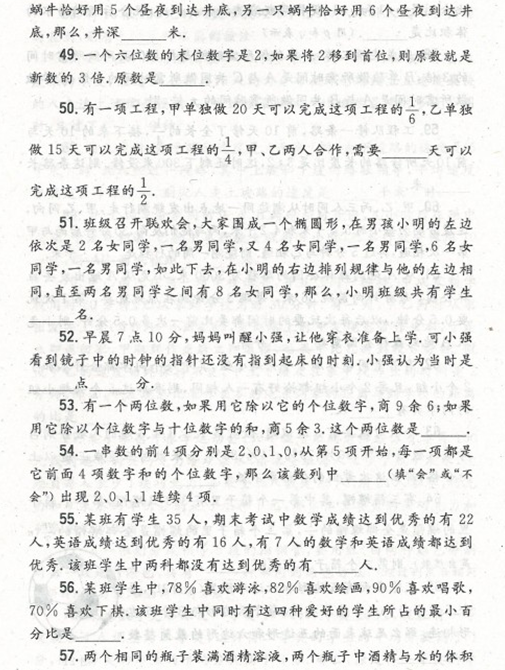 蜗牛恰好用5个昼夜到达井底,另一只蜗牛恰好用6个昼夜到达井
底,那么,井深____米.
49.一个六位数的末位数字是2,如果将2移到首位,则原数就是
新数的3倍.原数是____.
50.有一项工程,甲单独做20天可以完成这项工程的1/6,乙单独
做15天可以完成这项工程的1/4,甲、乙两人合作,需要____天可以
完成这项工程的1/2.
51.班级召开联欢会,大家围成一个椭圆形,在男孩小明的左边
依次是2名女同学,一名男同学,又4名女同学,一名男同学,6名女
同学,一名男同学,如此下去,在小明的右边排列规律与他的左边相
同,直至两名男同学之间有8名女同学,那么,小明班级共有学生
____名.
52.早晨7点10分,妈妈叫醒小强,让他穿衣准备上学.可小强
看到镜子中的时钟的指针还没有指到起床的时刻.小强认为当时是
____点____分.
53.有一个两位数,如果用它除以它的个位数字,商9余6;如果
用它除以个位数字与十位数字的和,商5余3.这个两位数是____.
54.一串数的前4项分别是2、0、1、0,从第5项开始,每一项都是
它前面4项数字和的个位数字,那么该数列中____(填“会”或“不
会”)出现2、0、1、1连续4项.
55.某班有学生35人,期末考试中数学成绩达到优秀的有22
人,英语成绩达到优秀的有16人,有7人的数学和英语成绩都达到
优秀.该班学生中两科都没有达到优秀的有____个人.
56.某班学生中,78%喜欢游泳,82%喜欢绘画,90%喜欢唱歌,
70%喜欢下棋.该班学生中同时有这四种爱好的学生所占的最小百
分比是____.
57.两个相同的瓶子装满酒精溶液,两个瓶子中酒精与水的体积